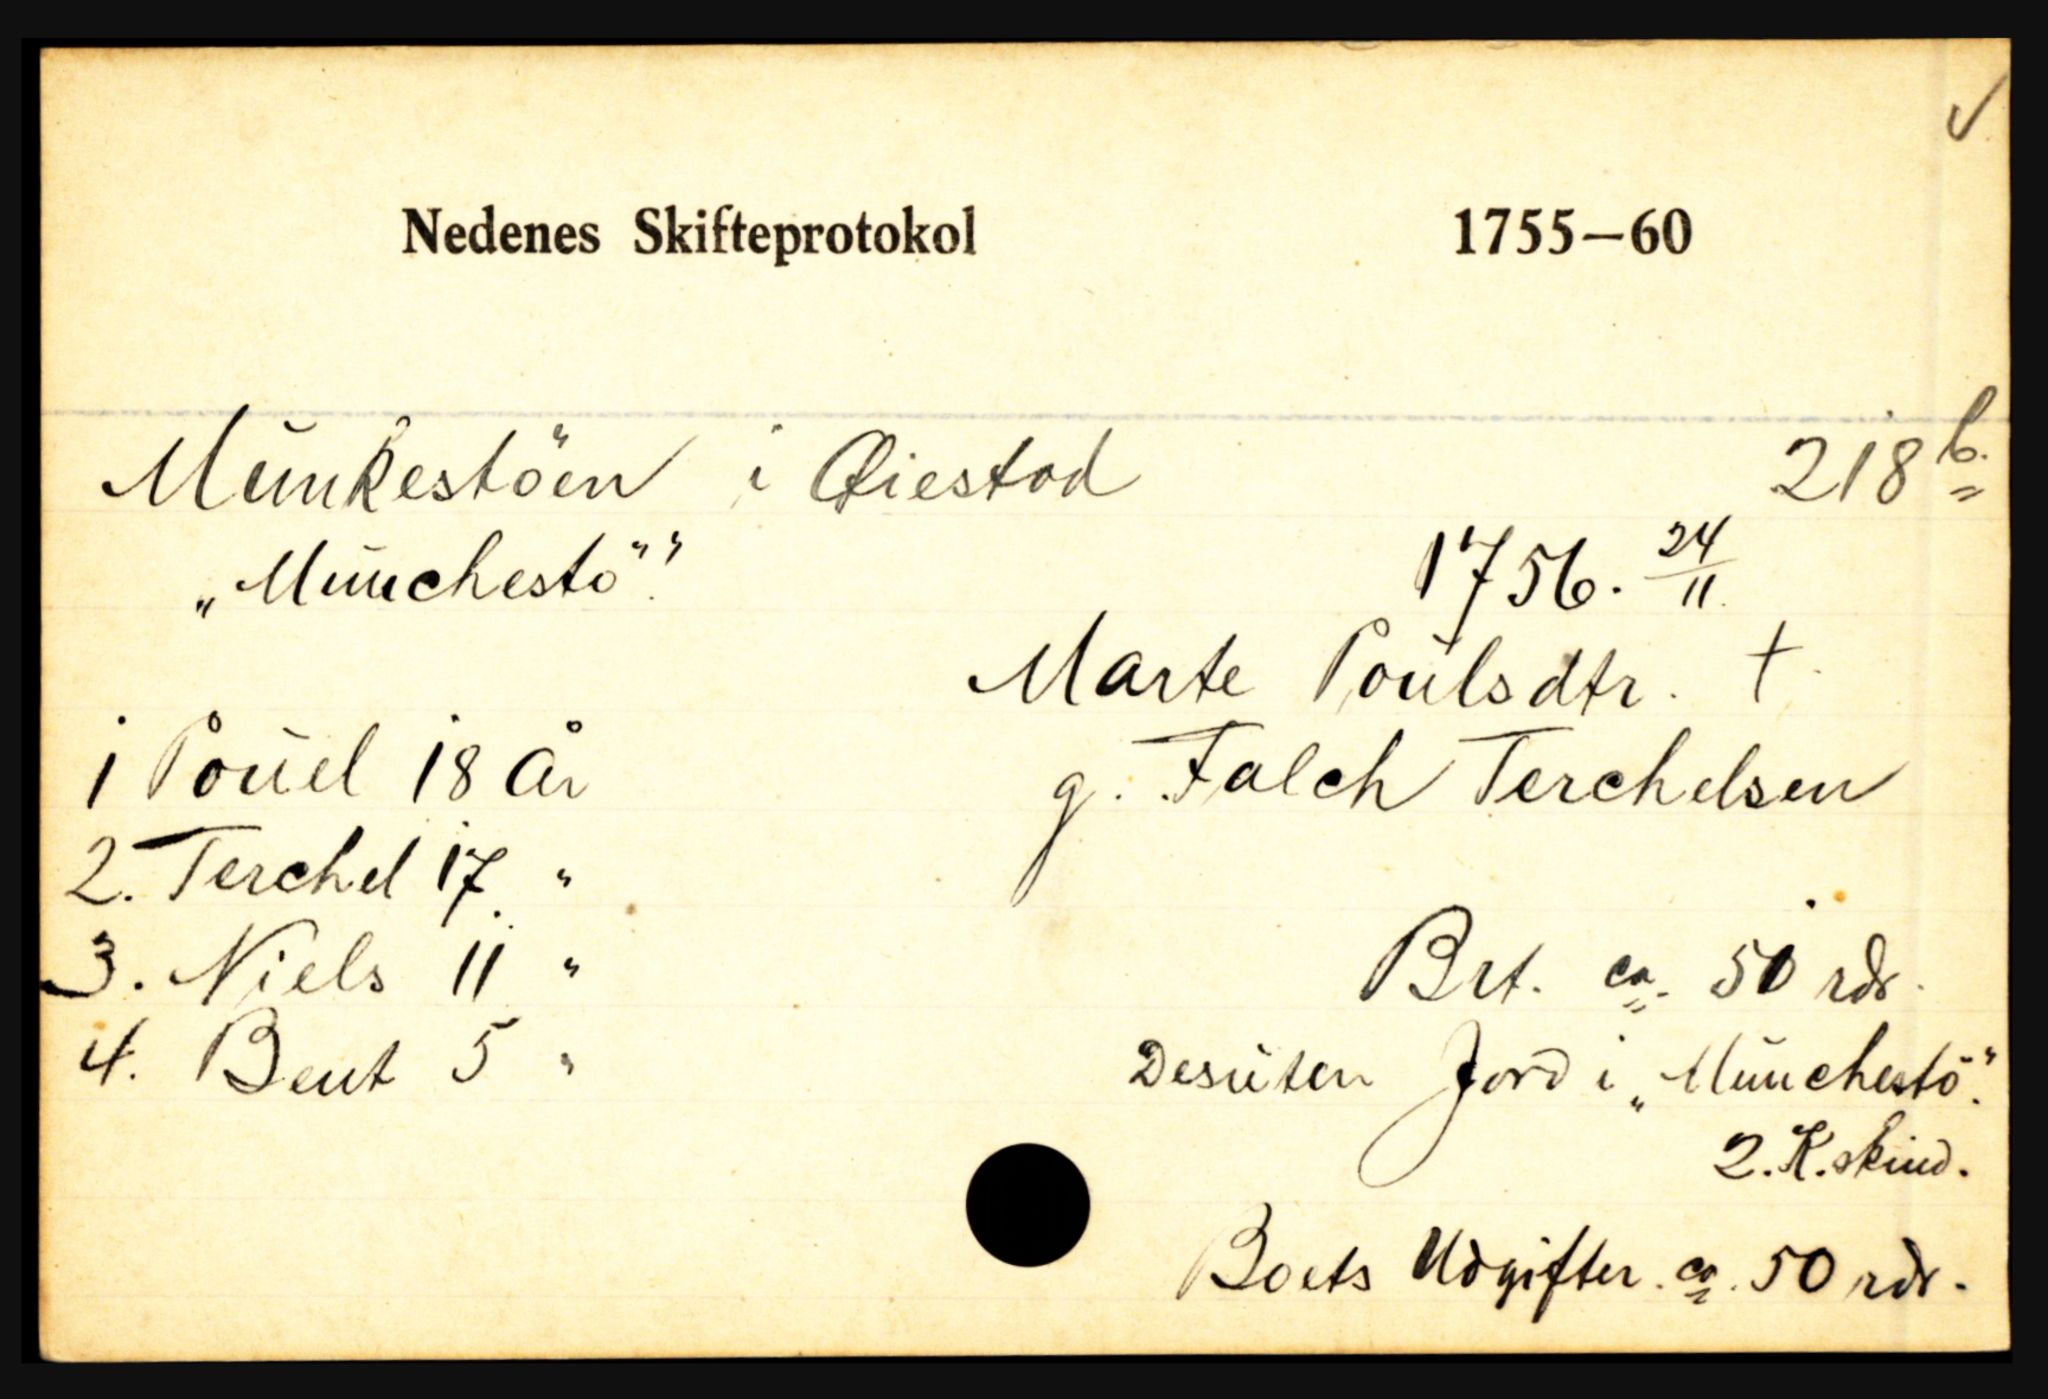 Nedenes Skifteprotokol 1755—60
Munkestöen i Øiestad 218 b.
„Munchestö".
1756. 24/11.
Marte Poulsdtr. †
g. Falch Terchelsen
1 Pouel 18 år
2. Terchel 17 "
3. Niels 11 "
4. Bent 5 "
Brt. ca. 50 rdr.
Desuten Jord i „Munchestö".
2. K. skind.
Boets Udgifter. ca. 50 rdr.